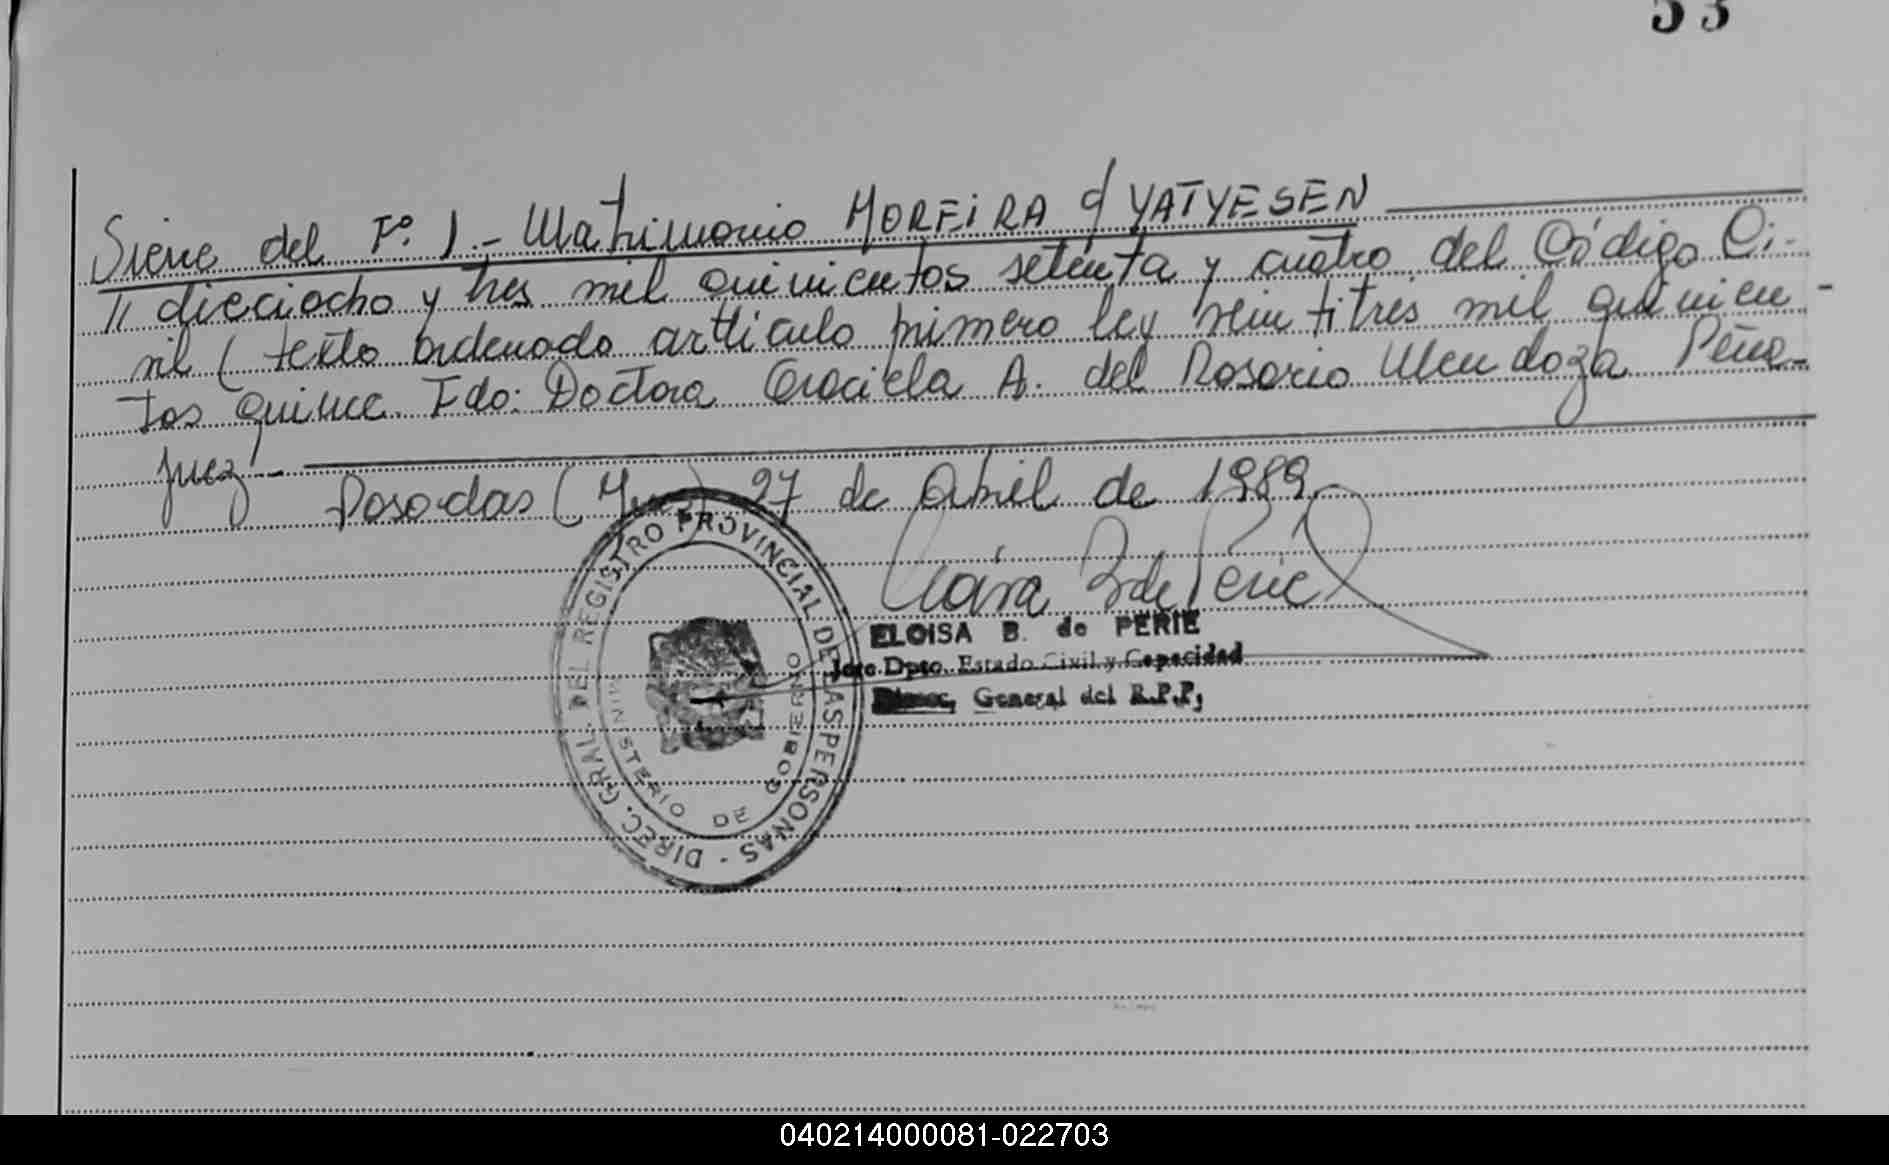 53
Siene del Fº. 1.- Matrimonio MOREIRA c/ YATYESEN
// dieciocho y tres mil quinientos setenta y cuatro del Código Ci-
vil ( texto ordenado artículo primero ley veintitres mil quinien-
tos quince. Fdo: Doctora Graciela A. del Rosario Mendoza Peña-
Juez -
Posadas ( Mnes) 27 de Abril de 1989.
DIREC. GRAL. DEL REGISTRO PROVINCIAL DE LAS PERSONAS -
MINISTERIO DE GOBIERNO
B de Perie
ELOISA B. de PERIE
Jefe Dpto. Estado Civil y Capacidad
Direc. General del R.P.P.
040214000081-022703